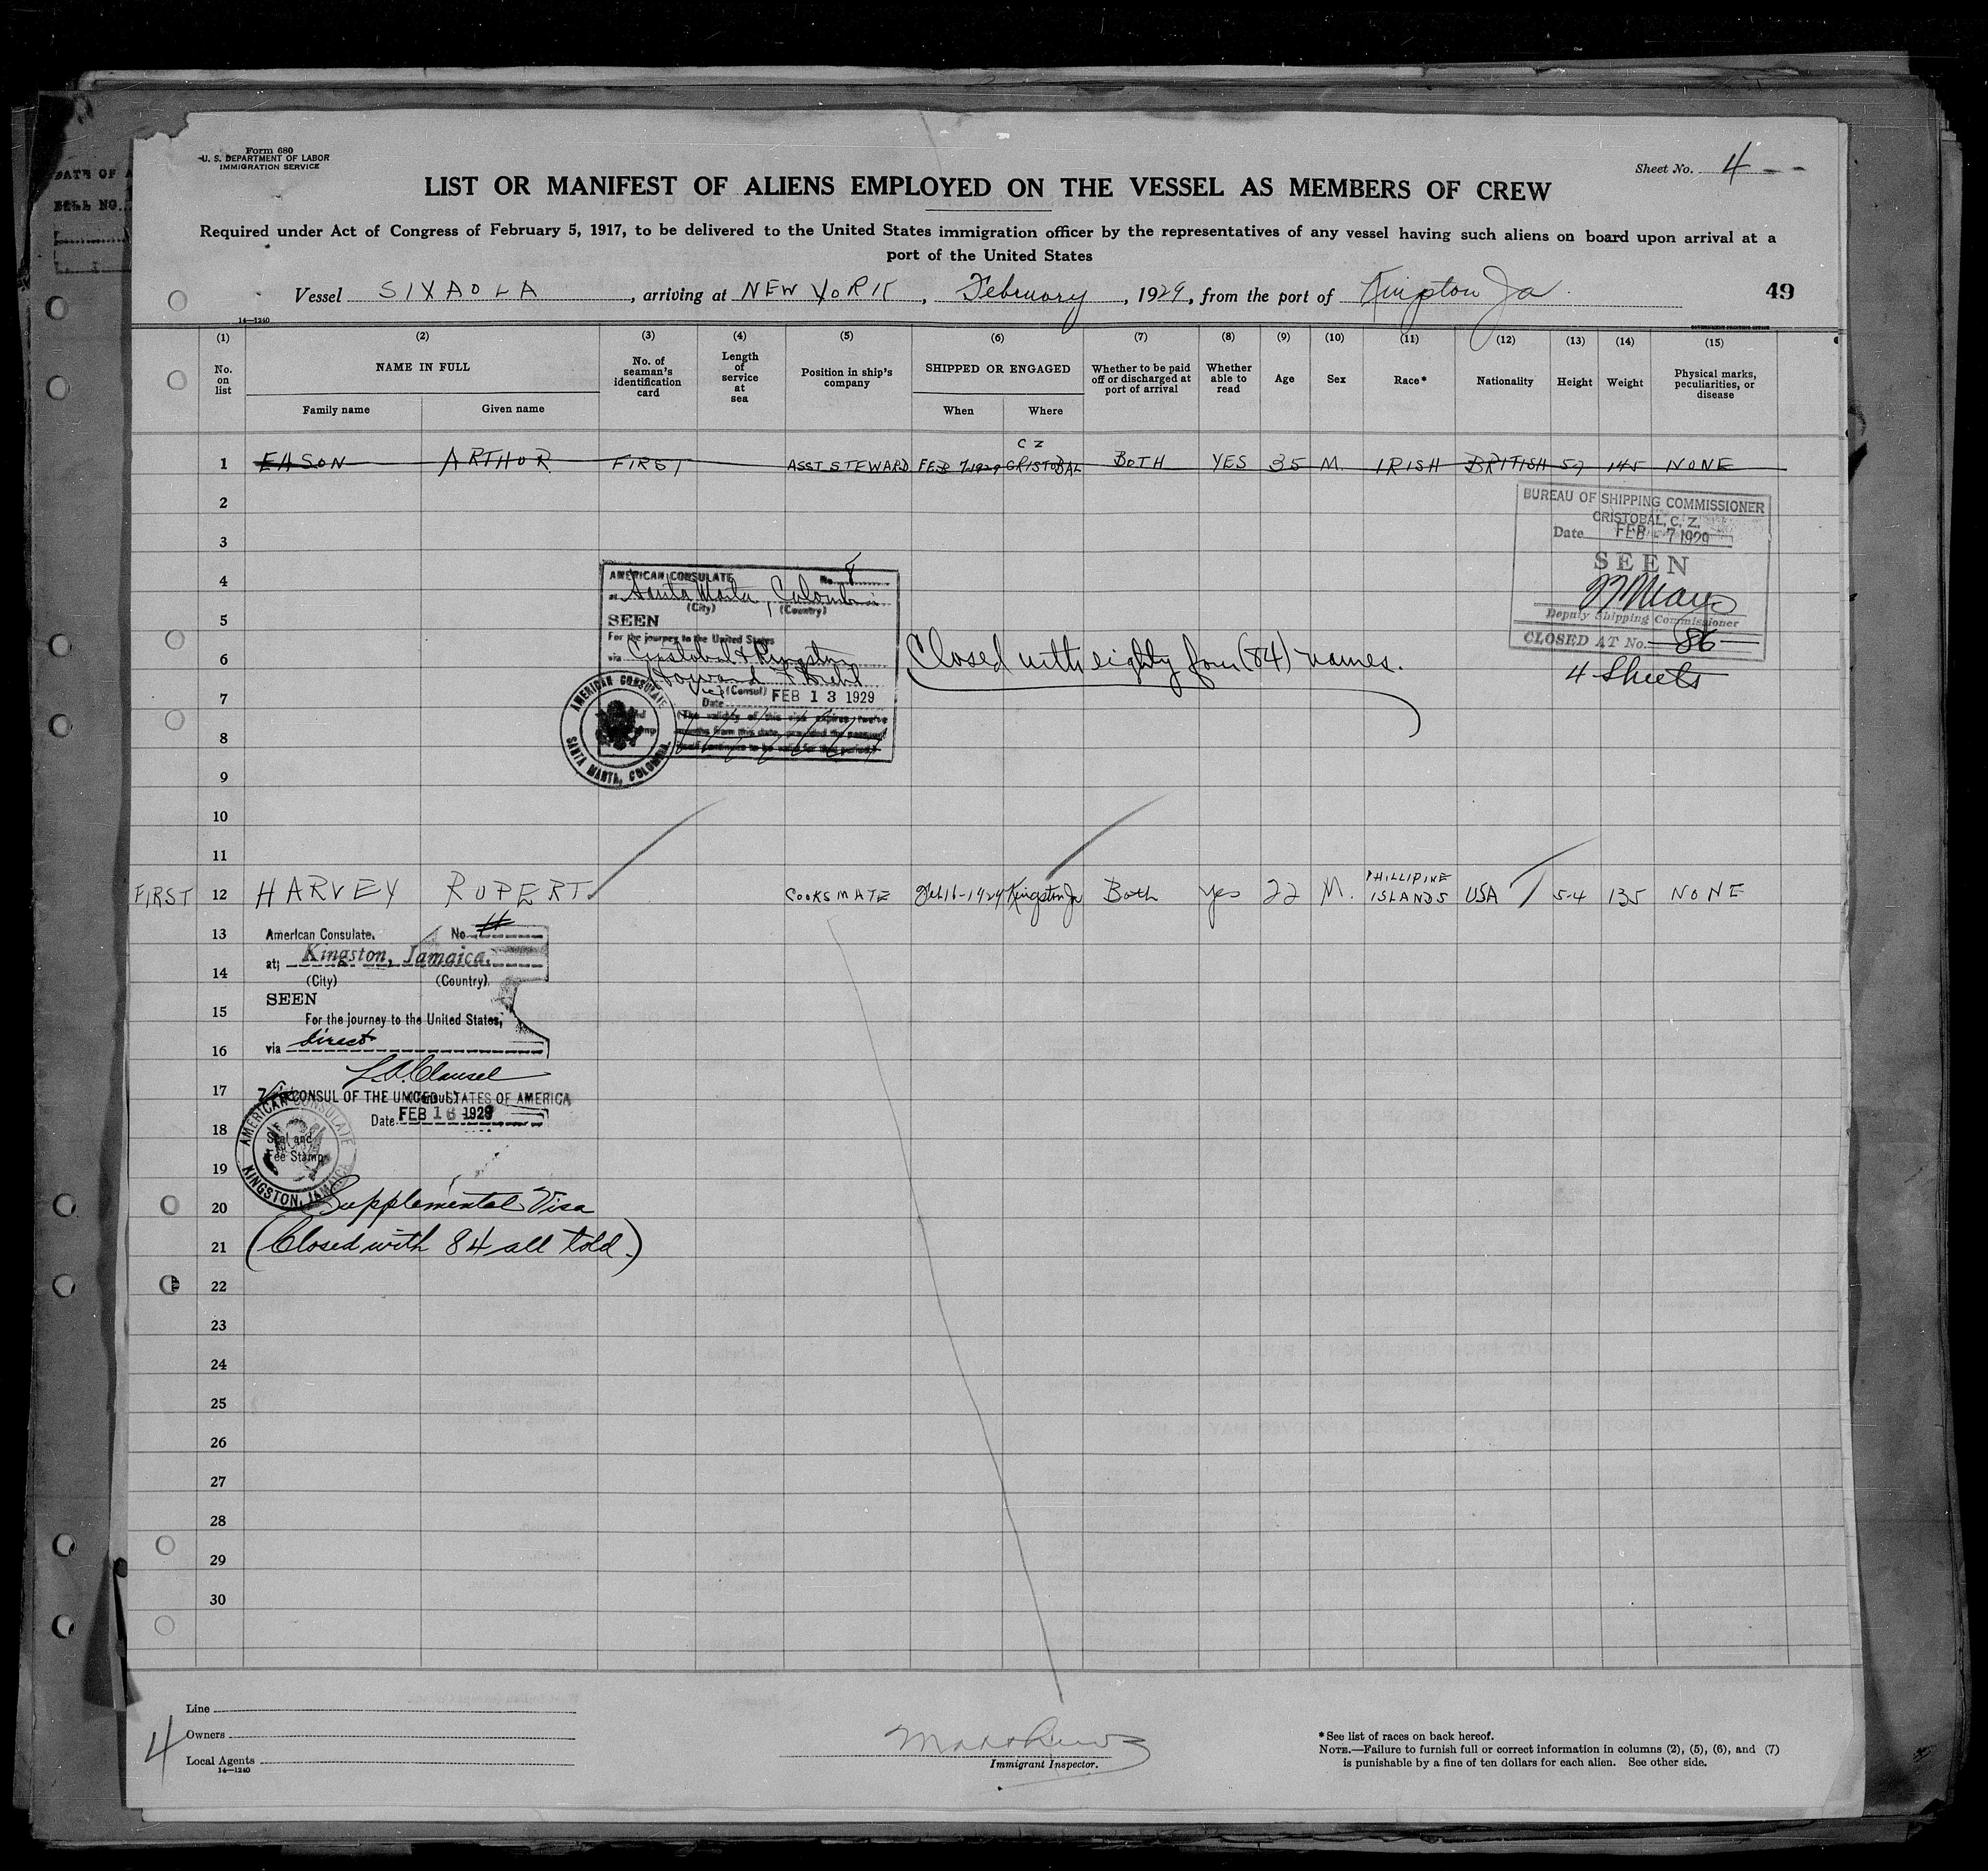 Form 680
U. S. DEPARTMENT OF LABOR
IMMIGRATION SERVICE
Sheet No. 4
LIST OR MANIFEST OF ALIENS EMPLOYED ON THE VESSEL AS MEMBERS OF CREW
Required under Act of Congress of February 5, 1917, to be delivered to the United States immigration officer by the representatives of any vessel having such aliens on board upon arrival at a
port of the United States
Vessel SIXAOLA, arriving at NEW YORK, February, 1929, from the port of Kingston Ja. 49
14—1240
GOVERNMENT PRINTING OFFICE
(1) (2) (3) (4) (5) (6) (7) (8) (9) (10) (11) (12) (13) (14) (15)
No. on list NAME IN FULL No. of seaman's identification card Length of service at sea Position in ship's company SHIPPED OR ENGAGED Whether to be paid off or discharged at port of arrival Whether able to read Age Sex Race* Nationality Height Weight Physical marks, peculiarities, or disease
Family name Given name When Where
C Z
1 EASON ARTHUR FIRST ASST STEWARD FEB 7-1929 CRISTOBAL BOTH YES 35 M. IRISH BRITISH 5-7 145 NONE
2
3
4
5
6
7
8
9
10
11
BUREAU OF SHIPPING COMMISSIONER
CRISTOBAL, C. Z.
Date FEB - 7 1929
SEEN
Deputy Shipping Commissioner
CLOSED AT No. 86
4 Sheets
AMERICAN CONSULATE No. 8
at Santa Marta, Colombia
(City) (Country)
SEEN
For the journey to the United States
via Cristobal & Kingston
Howard F
Vice (Consul)
Date FEB 13 1929
(The validity of this visa expires twelve
months from this date, provided the passport
itself continues to be valid for that period.)
AMERICAN CONSULATE
SANTA MARTA, COLOMBIA.
Closed with eighty four (84) names.
FIRST 12 HARVEY RUPERT COOKS MATE Feb 16-1929 Kingston Ja Both Yes 22 M. PHILLIPINE ISLANDS USA 5-4 135 NONE
13
14
15
16
17
18
19
20
21
22
23
24
25
26
27
28
29
30
American Consulate. No.
at; Kingston, Jamaica.
(City) (Country)
SEEN
For the journey to the United States,
via direct
L.A. Clausel
Vice CONSUL OF THE UNITED STATES OF AMERICA
(Consul)
Date FEB 16 1929
AMERICAN CONSULATE
Seal and
Fee Stamp
KINGSTON, JAMAICA
Supplemental Visa
(Closed with 84 all told.)
Line
Owners
Local Agents
14—1240
4
Immigrant Inspector.
* See list of races on back hereof.
NOTE.—Failure to furnish full or correct information in columns (2), (5), (6), and (7)
is punishable by a fine of ten dollars for each alien. See other side.
DATE OF A
BELL NO.